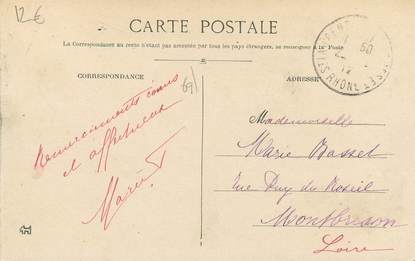 12€
CARTE POSTALE
La Correspondance au recto n'étant pas acceptée par tous les pays étrangers, se renseigner à la Poste
CORRESPONDANCE
69
Remerciements émus
et affectueux
Marie
ADRESSE
RHONE
Mademoiselle
Marie Basset
Rue Puy du
Montbrison
Loire